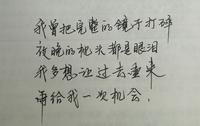 我曾把完整的镜子打碎
夜晚的枕头都是眼泪
我多想让过去重来
再给我一次机会.